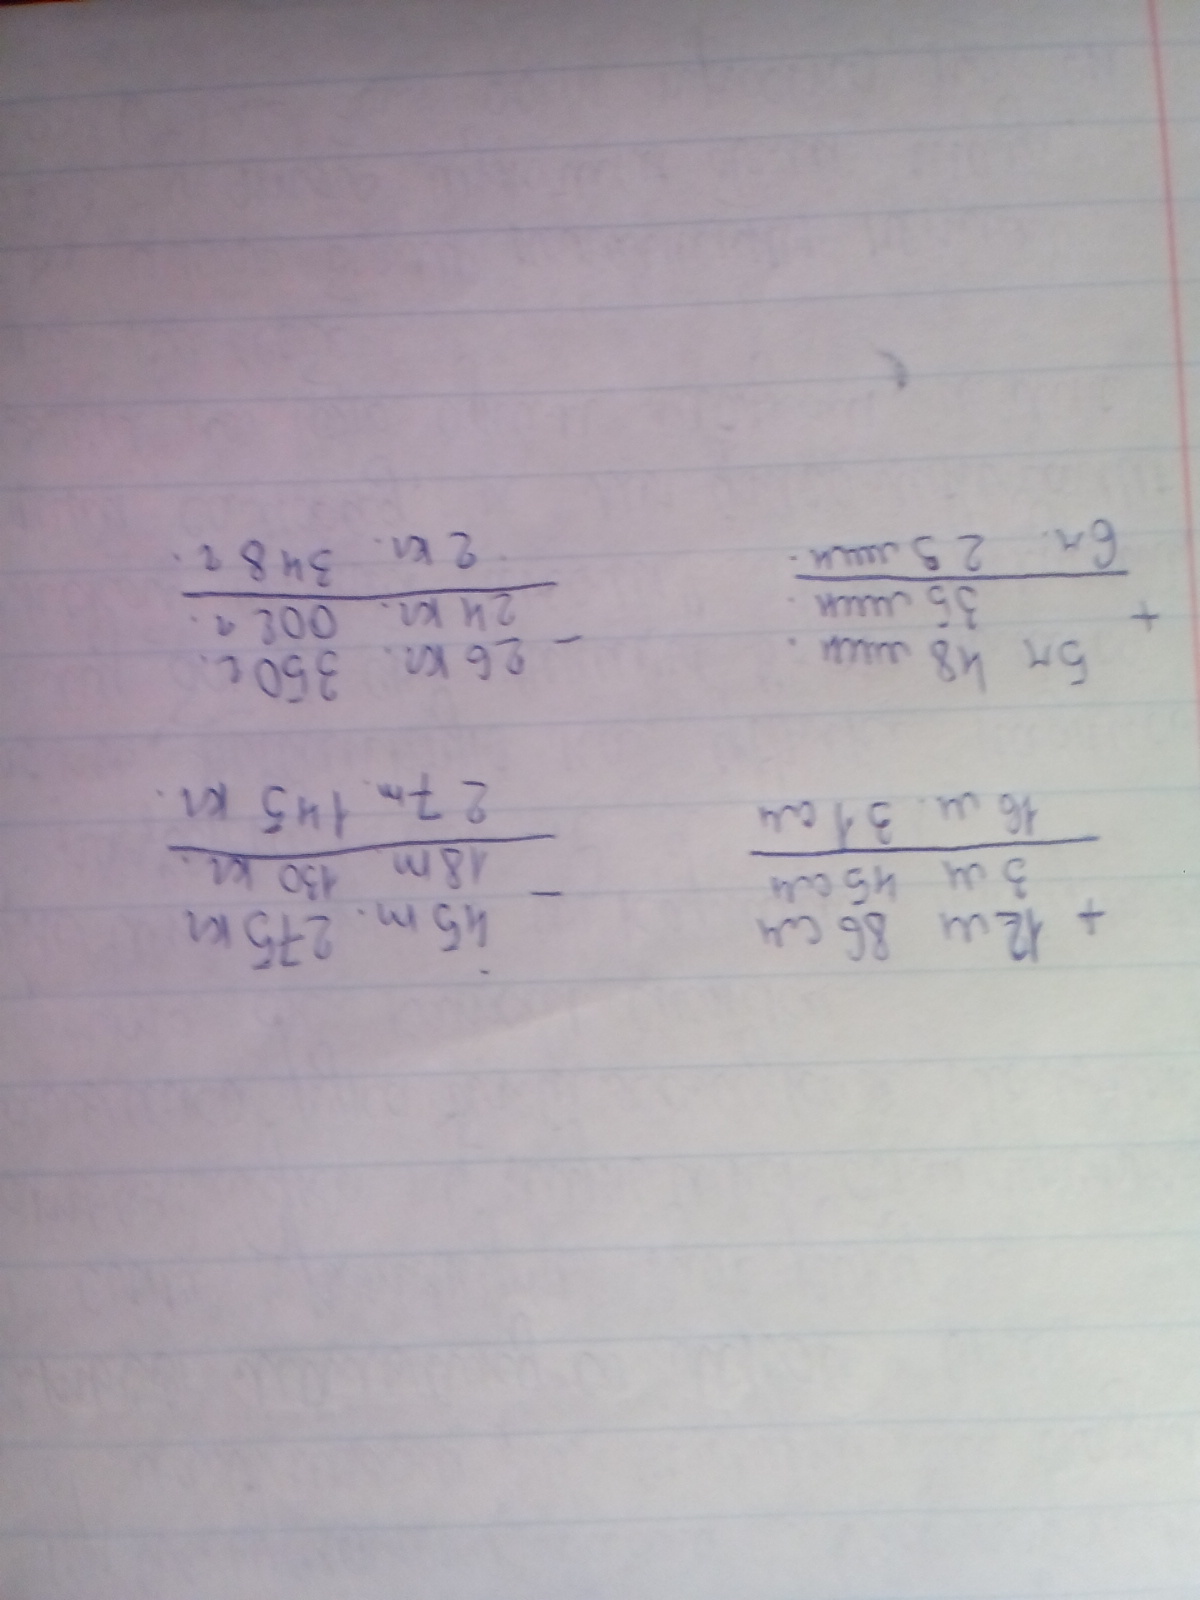 + 12 м 86 см
3 м 45 см
16 м. 31 см
45 т. 275 кг
- 18 т 130 кг.
27 т. 145 кг.
5 ч 48 мин.
+ 35 мин.
6 ч. 23 мин.
- 26 кг. 350 г.
24 кг. 002 г.
2 кг. 348 г.